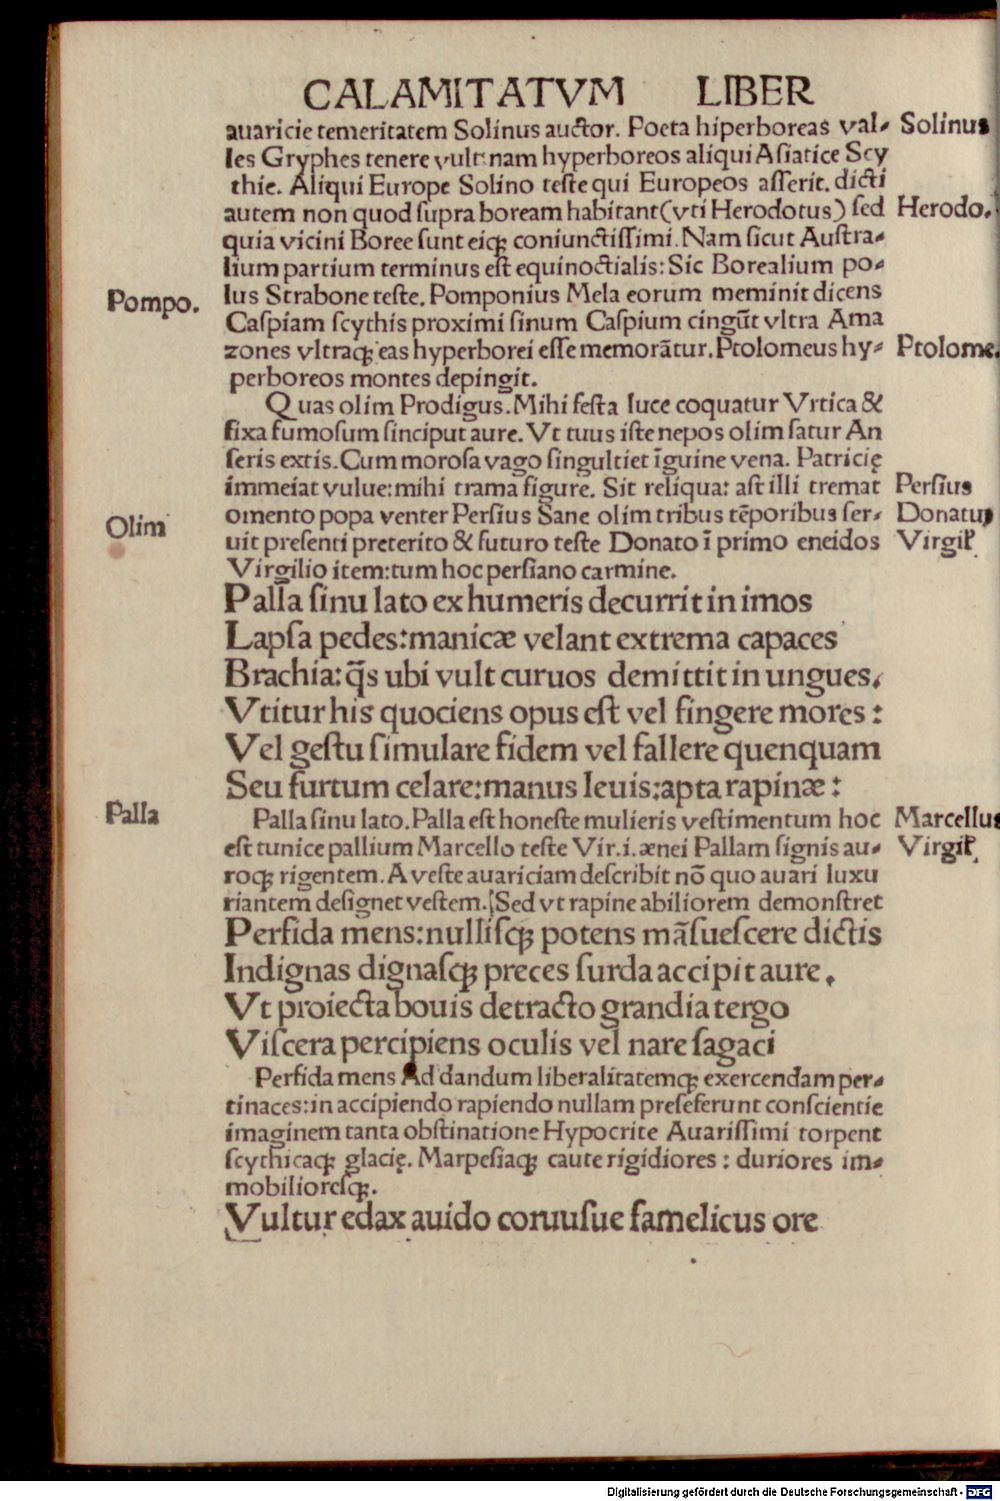 CALAMITATVM LIBER
auaricie temeritatem Solinus auctor. Poeta hiperboreas val- Solinus
les Gryphes tenere vult: nam hyperboreos aliqui Asiatice Scy
thie. Aliqui Europe Solino teste qui Europeos asserit. dicti
autem non quod supra boream habitant(vti Herodotus) sed Herodo.
quia vicini Boree sunt eiqꝫ coniunctissimi. Nam sicut Austra-
lium partium terminus est equinoctialis: Sic Borealium po-
Pompo. lus Strabone teste. Pomponius Mela eorum meminit dicens
Caspiam scythis proximi sinum Caspium cingūt vltra Ama
zones vltraqꝫ eas hyperborei esse memorātur. Ptolomeus hy- Ptolome.
perboreos montes depingit.
Quas olim Prodigus. Mihi festa luce coquatur Vrtica &
fixa fumosum sinciput aure. Vt tuus iste nepos olim satur An
seris extis. Cum morosa vago singultiet īguine vena. Patricię
immeiat vulue: mihi trama figure. Sit reliqua: ast illi tremat Persius
Olim omento popa venter Persius Sane olim tribus tēporibus ser- Donatus
uit presenti preterito & futuro teste Donato ī primo eneidos Virgil̉
Virgilio item: tum hoc persiano carmine.
Palla sinu lato ex humeris decurrit in imos
Lapsa pedes: manicæ velant extrema capaces
Brachia: q̄s ubi vult curuos demittit in ungues.
Vtitur his quociens opus est vel fingere mores:
Vel gestu simulare fidem vel fallere quenquam
Seu furtum celare: manus leuis: apta rapinæ:
Palla Palla sinu lato. Palla est honeste mulieris vestimentum hoc Marcellus
est tunice pallium Marcello teste Vir. i. ænei Pallam signis au- Virgil̉
roqꝫ rigentem. A veste auariciam describit nō quo auari luxu
riantem designet vestem. Sed vt rapine abiliorem demonstret
Perfida mens: nullisqꝫ potens māsuescere dictis
Indignas dignasqꝫ preces surda accipit aure.
Vt proiecta bouis detracto grandia tergo
Viscera percipiens oculis vel nare sagaci
Perfida mens Ad dandum liberalitatemqꝫ exercendam per-
tinaces: in accipiendo rapiendo nullam preseferunt conscientie
imaginem tanta obstinatione Hypocrite Auarissimi torpent
scythicaqꝫ glacię. Marpesiaqꝫ caute rigidiores: duriores im-
mobilioresqꝫ.
Vultur edax auido coruusue famelicus ore
Digitalisierung gefördert durch die Deutsche Forschungsgemeinschaft - DFG